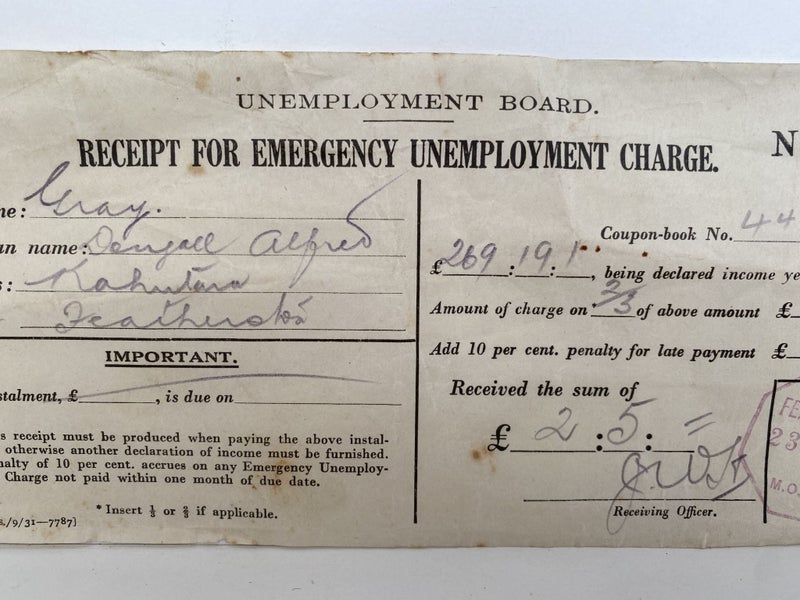 UNEMPLOYMENT BOARD.
RECEIPT FOR EMERGENCY UNEMPLOYMENT CHARGE.
N
ne: Gray.
an name: Alfred
s: Kahutara
Featherston
IMPORTANT.
stalment, £ , is due on
s receipt must be produced when paying the above instal-
otherwise another declaration of income must be furnished.
nalty of 10 per cent. accrues on any Emergency Unemploy-
Charge not paid within one month of due date.
* Insert ⅓ or ⅔ if applicable.
s./9/31—7787]
Coupon-book No. 44
£269 : 19 : 1 , being declared income ye
Amount of charge on * 2/3 of above amount £
Add 10 per cent. penalty for late payment £
Received the sum of
£ 2 : 5 : =
Receiving Officer.
FE
23
M.O.